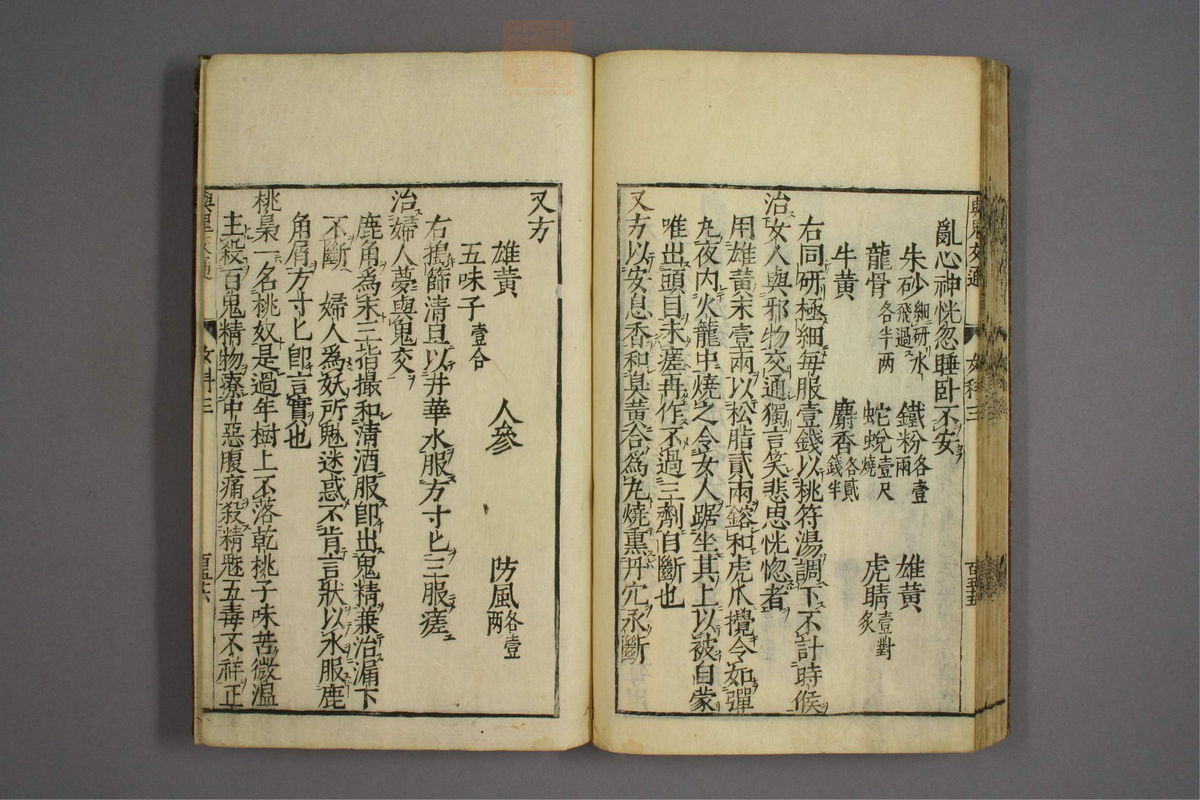 亂心神恍忽睡卧不安
朱砂細研水飛過 鐵粉各壹兩 雄黃
龍骨各半两 蛇蛻壹尺燒 虎睛壹對炙
牛黃 麝香各貳錢半
右同研極細每服壹錢以桃符湯調下不計時候
治女人與邪物交通獨言笑悲思恍惚者
用雄黃末壹兩以松脂貳兩鎔和虎爪攪令如彈
丸夜内火龍中燒之令女人踞坐其上以被自蒙
唯出頭目未瘥再作不過三劑自斷也
又方以安息香和臭黃合為丸燒熏丹穴永斷
與鬼交通 女科三 百五十五
又方
雄黃 人參 防風各壹两
五味子壹合
右擣篩清旦以井華水服方寸匕三服瘥
治婦人夢與鬼交
鹿角為末三指撮和清酒服卽出鬼精兼治漏下
不斷 婦人為妖所魅迷惑不肯言狀以水服鹿
角屑方寸匕卽言實也
桃梟一名桃奴是過年樹上不落乾桃子味苦微溫
主殺百鬼精物療中惡腹痛殺精魅五毒不祥正
女科三